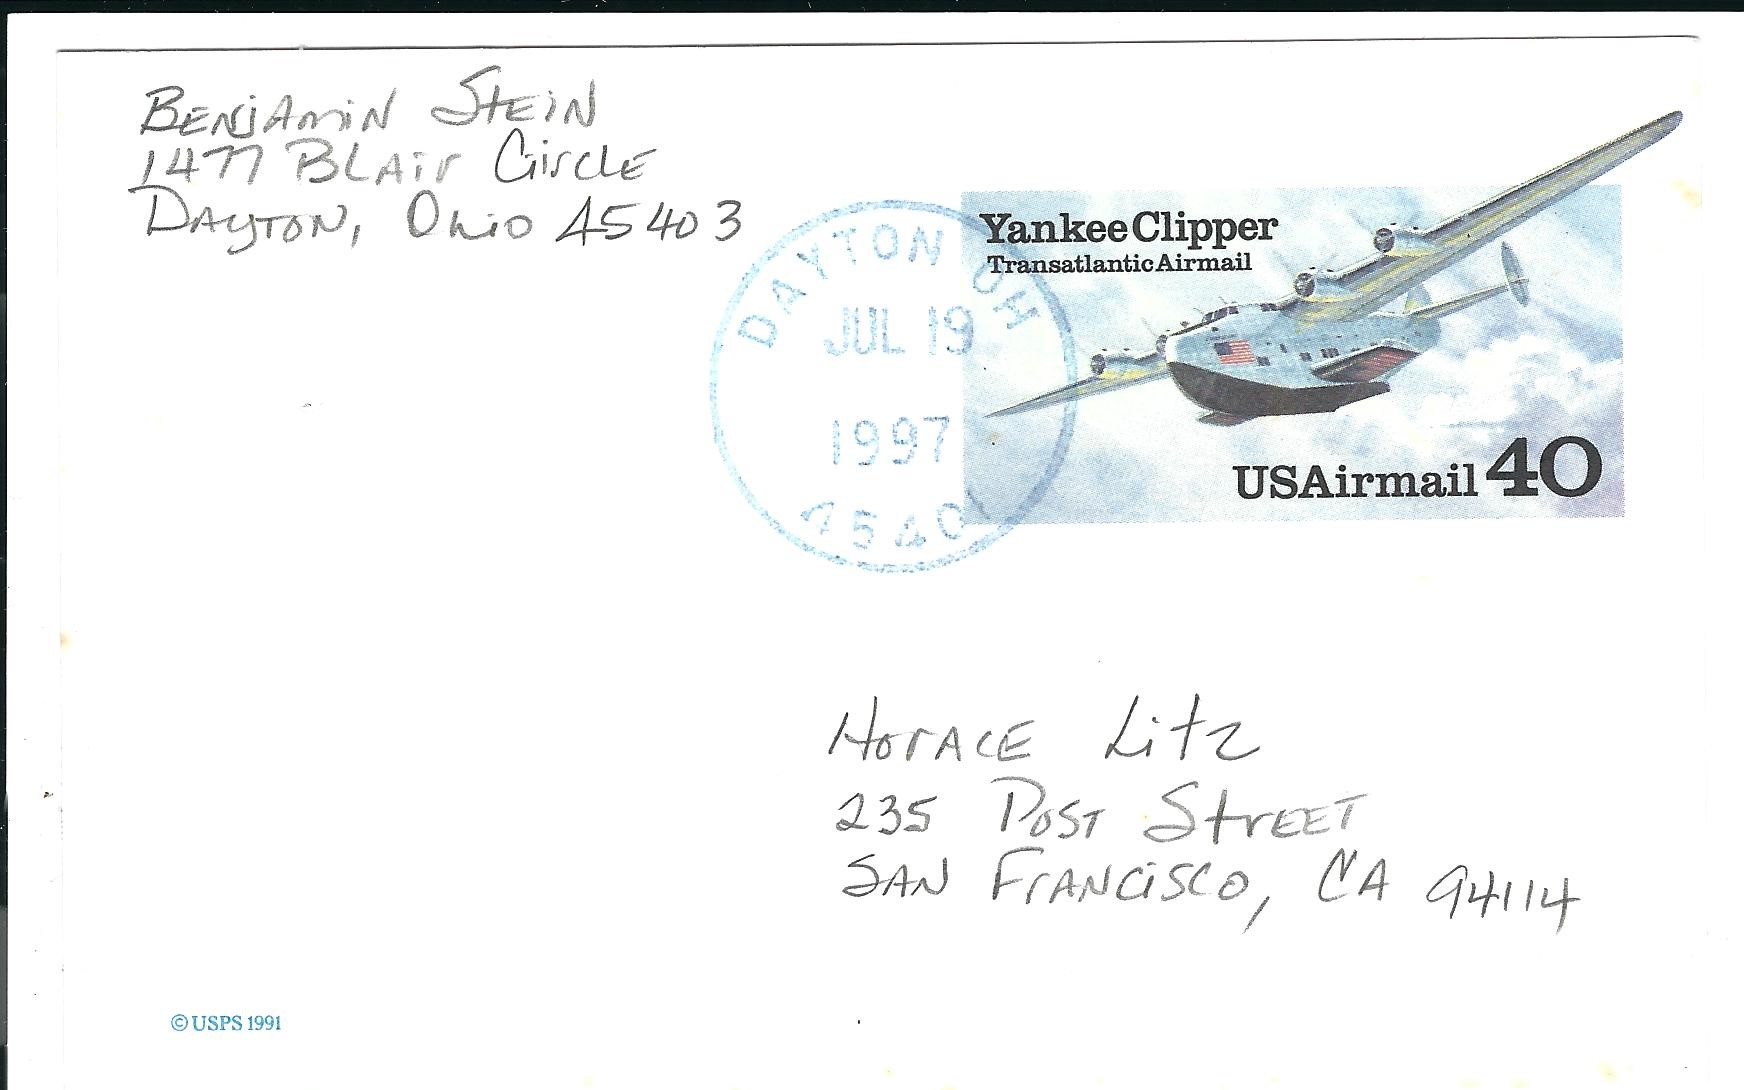 BENJAMIN STEIN
1477 BLAIR CIRCLE
DAYTON, OHIO 45403
DAYTON OH
JUL 19
1997
4540
Yankee Clipper
Transatlantic Airmail
USAirmail 40
HORACE LITZ
235 POST STREET
SAN FRANCISCO, CA 94114
© USPS 1991